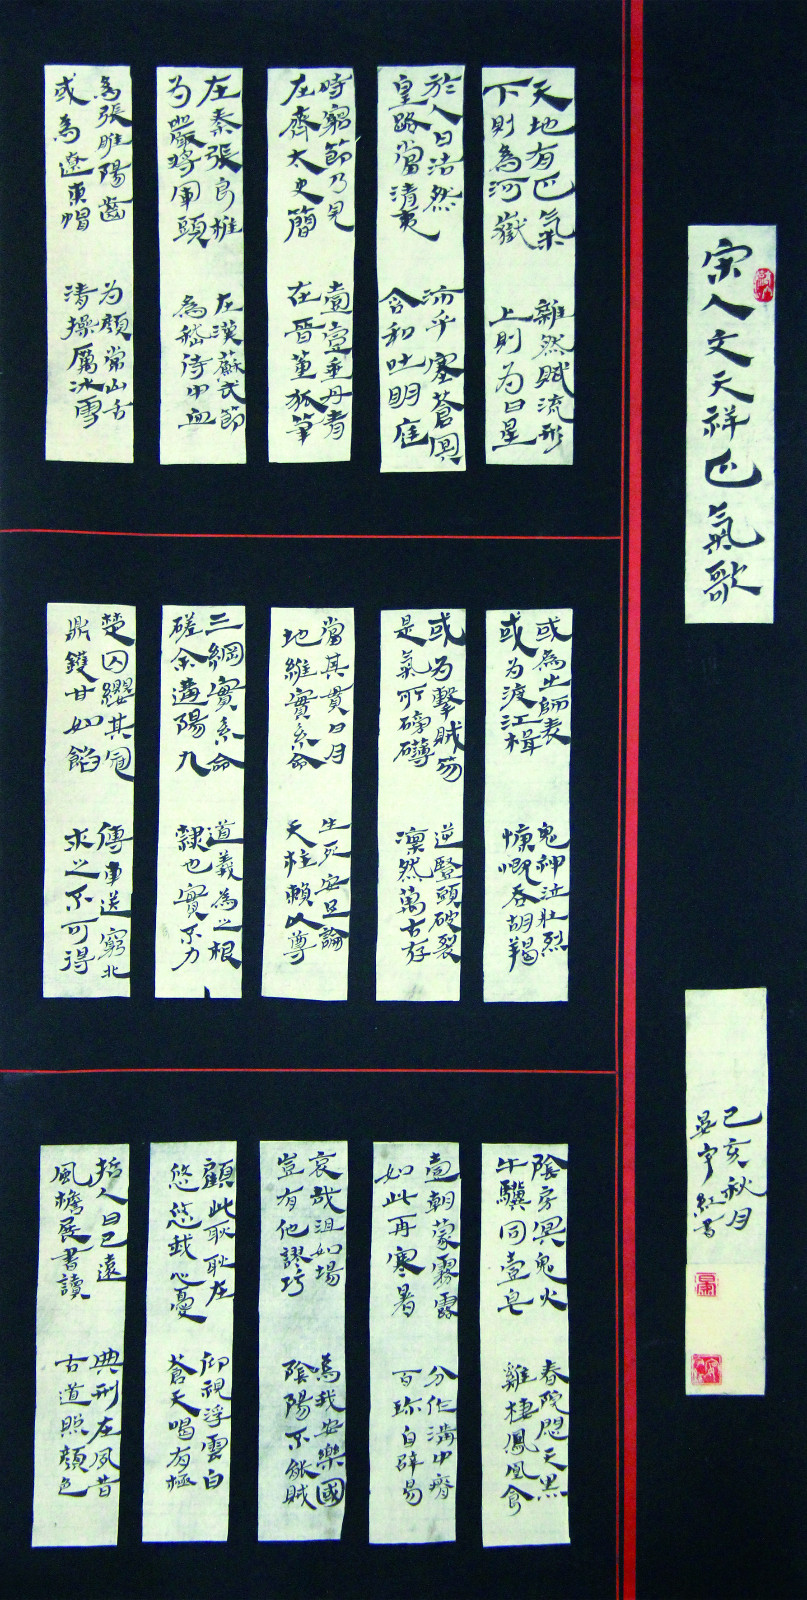 宋人文天祥正氣歌
天地有正氣 雜然賦流形
下則為河嶽 上則为日星
於人曰浩然 沛乎塞蒼冥
皇路當清夷 含和吐明庭
時窮節乃見 壹壹垂丹青
在齊太史簡 在晉董狐筆
在秦張良椎 在漢蘇武節
为嚴將軍頭 為嵇侍中血
為張睢陽齒 为顏常山舌
或為遼東帽 清操厲冰雪
或為出師表 鬼神泣壯烈
或为渡江楫 慷慨吞胡羯
或为擊賊笏 逆豎頭破裂
是氣所磅礴 凜然萬古存
當其貫日月 生死安足論
地維實系命 天柱賴以尊
三綱實系命 道義為之根
磋余遘陽九 隸也實不力
楚囚纓其冠 傳車送窮北
鼎鑊甘如飴 求之不可得
陰房冥鬼火 春院閟天黑
牛驥同壹皂 雞棲鳳凰食
壹朝蒙霧露 分作溝中瘠
如此再寒暑 百沴自辟易
哀哉沮如場 為我安樂國
豈有他謬巧 陰陽不能賊
顧此耿耿在 仰視浮雲白
悠悠我心憂 蒼天喝有極
哲人日已遠 典刑在夙昔
風檐展書讀 古道照顏色
己亥秋月
晏宇紅書